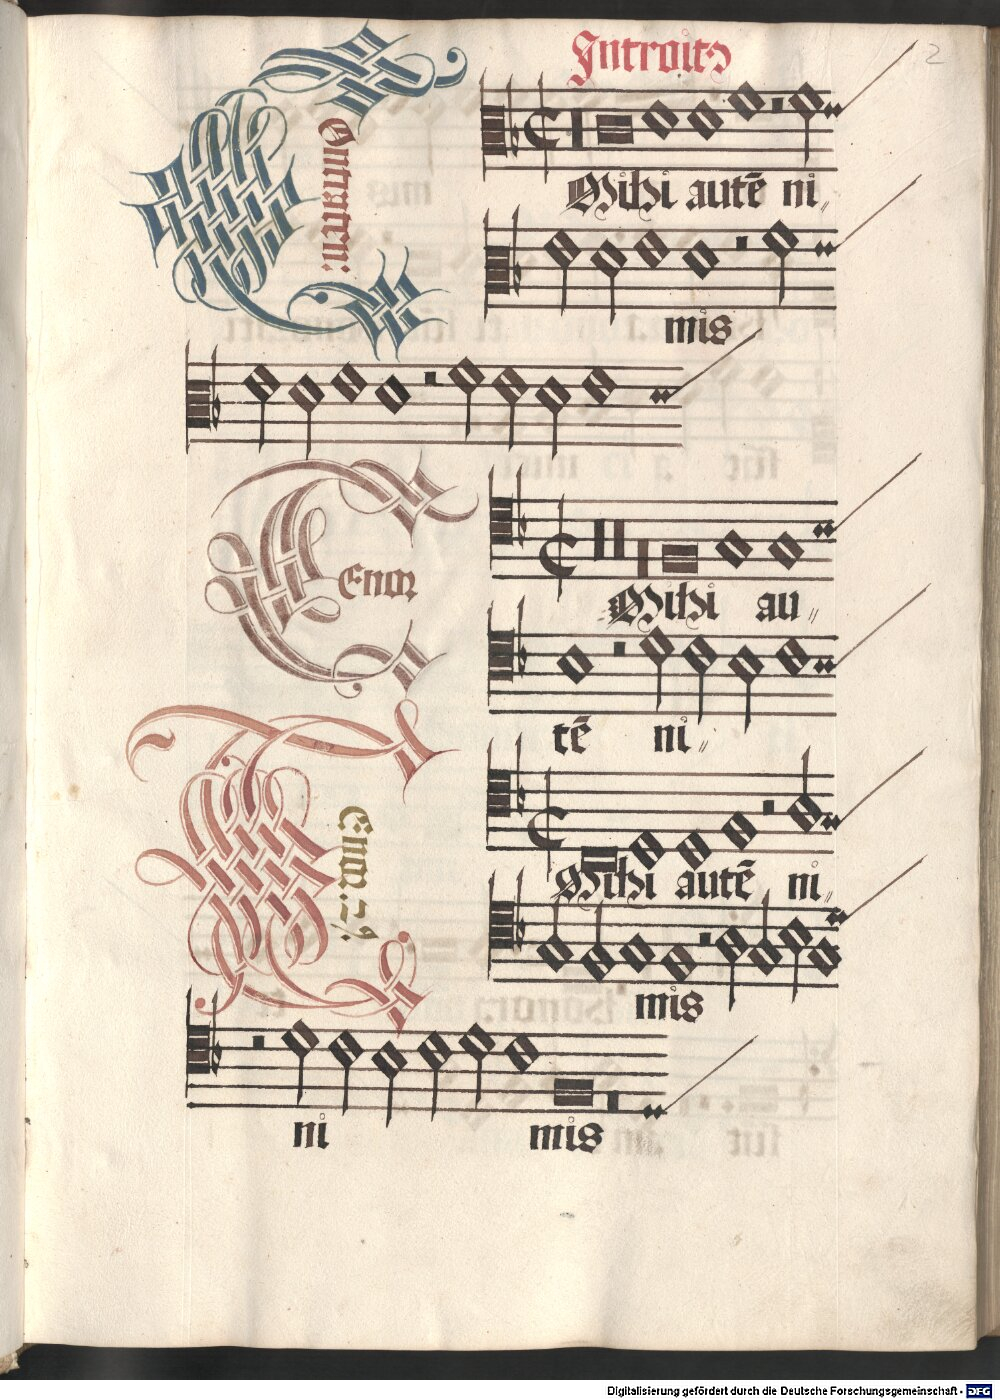 2
Introitꝰ
Contraten:
Mihi autē ni„
mis
Tenor
Mihi au„
tē ni„
Tenor 2ꝰ.
Mihi autē ni„
mis
ni mis
Digitalisierung gefördert durch die Deutsche Forschungsgemeinschaft - DFG